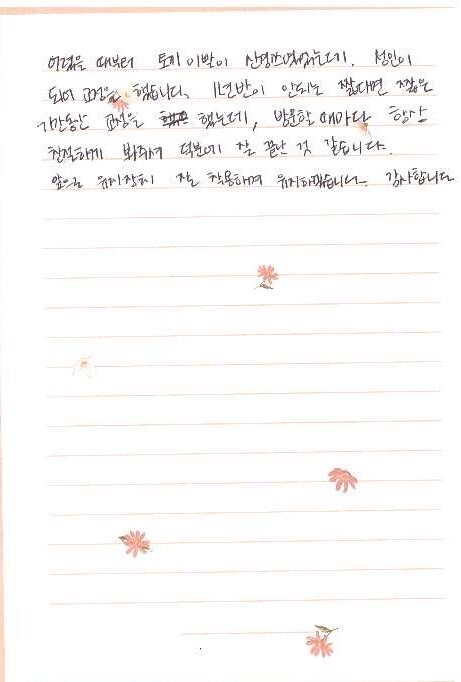 어렸을 때부터 토끼 이빨이 신경쓰였었는데. 성인이
되어 교정을 했습니다. 1년반이 안되는 짧다면 짧은
기간동안 교정을 했는데, 방문할 때마다 항상
친절하게 봐주셔 덕분에 잘 끝난 것 같습니다.
앞으로 유지장치 잘 착용하여 유지하겠습니다. 감사합니다